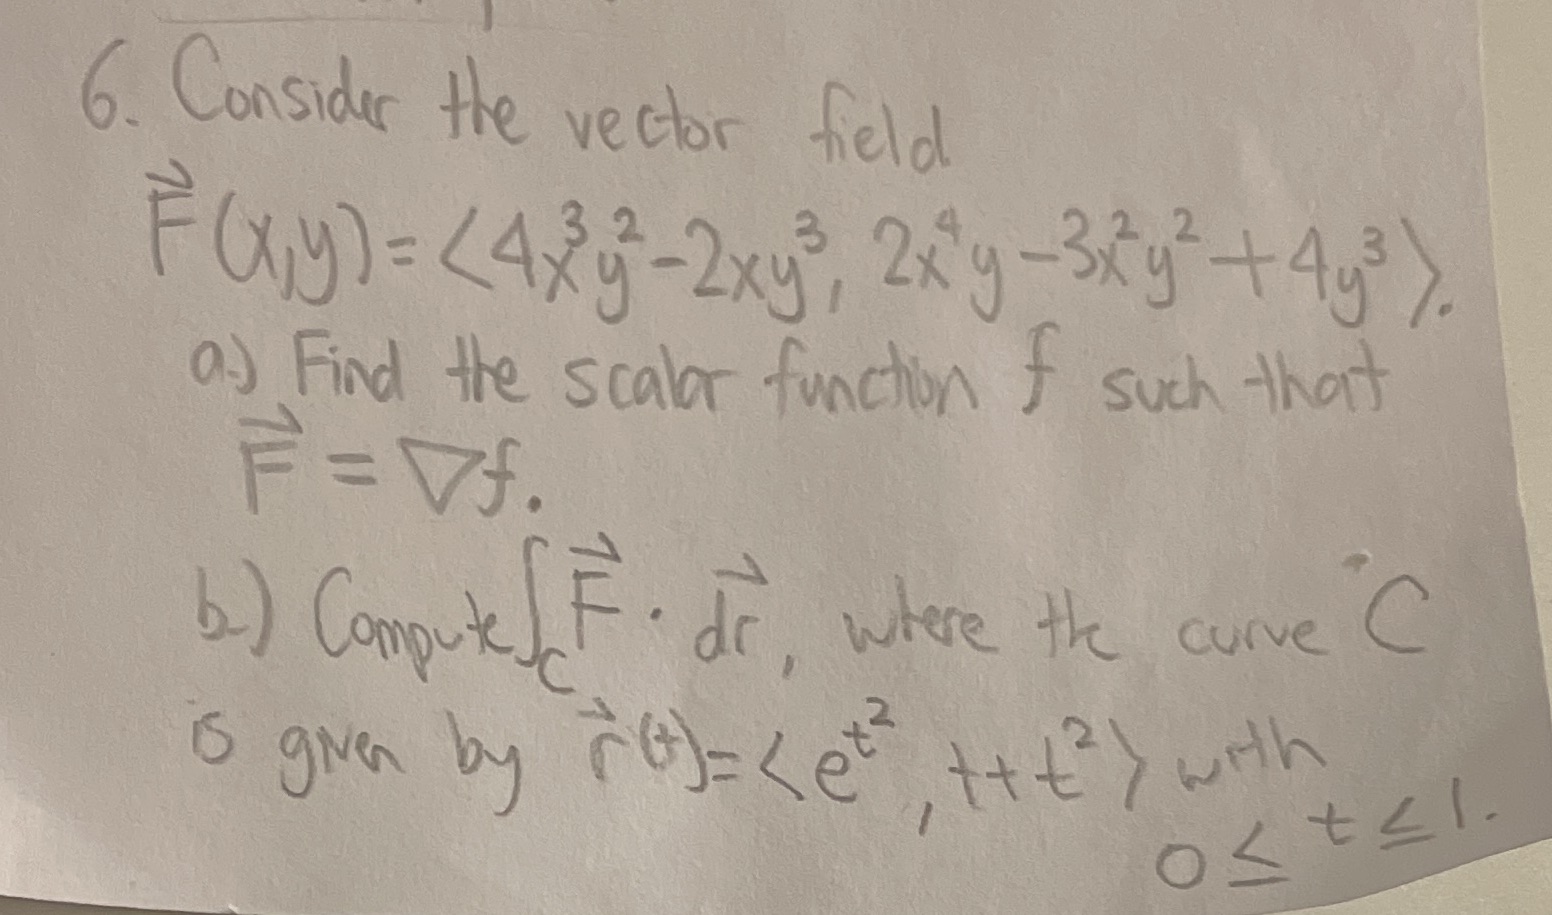 6. Consider the vector field
F⃗(x,y)=⟨4x³y²-2xy³, 2x⁴y-3x²y²+4y³⟩.
a.) Find the scalar function f such that
F⃗ = ∇f.
b.) Compute ∫_C F⃗ · d⃗r, where the curve C
is given by r⃗(t)=⟨e^{t²}, t+t²⟩ with
0 ≤ t ≤ 1.